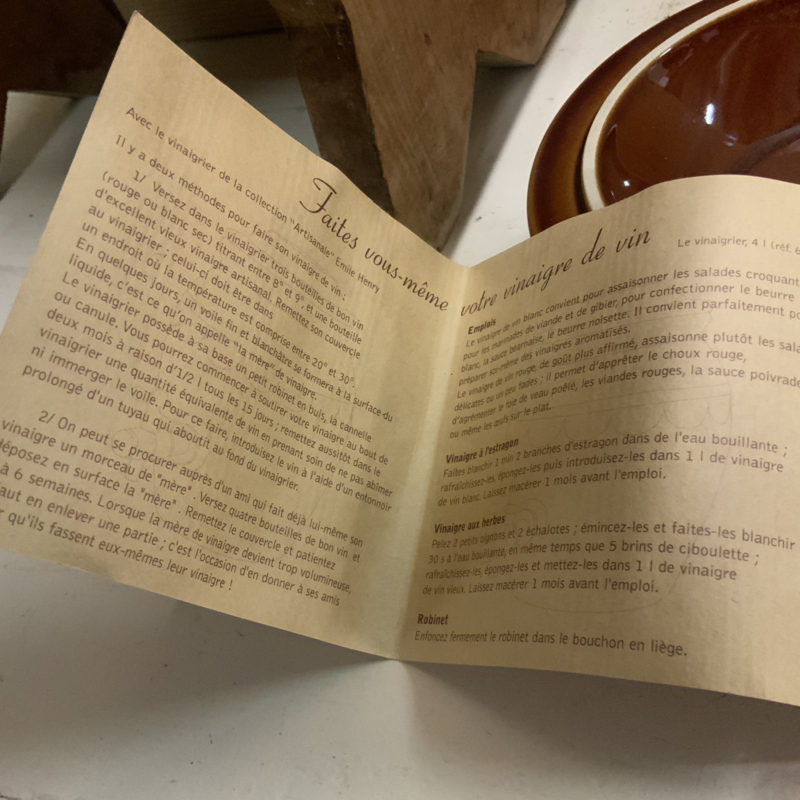 Faites vous-même votre vinaigre de vin
Avec le vinaigrier de la collection "Artisanale" Emile Henry
Il y a deux méthodes pour faire son vinaigre de vin :
1/ Versez dans le vinaigrier trois bouteilles de bon vin
(rouge ou blanc sec) titrant entre 8° et 9° et une bouteille
d'excellent vieux vinaigre artisanal. Remettez son couvercle
au vinaigrier ; celui-ci doit être dans
un endroit où la température est comprise entre 20° et 30°.
En quelques jours, un voile fin et blanchâtre se formera à la surface du
liquide, c'est ce qu'on appelle "la mère" de vinaigre.
Le vinaigrier possède à sa base un petit robinet en buis, la cannelle
ou canule. Vous pourrez commencer à soutirer votre vinaigre au bout de
deux mois à raison d'1/2 l tous les 15 jours ; remettez aussitôt dans le
vinaigrier une quantité équivalente de vin en prenant soin de ne pas abîmer
ni immerger le voile. Pour ce faire, introduisez le vin à l'aide d'un entonnoir
prolongé d'un tuyau qui aboutit au fond du vinaigrier.
2/ On peut se procurer auprès d'un ami qui fait déjà lui-même son
vinaigre un morceau de "mère". Versez quatre bouteilles de bon vin et
déposez en surface la "mère". Remettez le couvercle et patientez
à 6 semaines. Lorsque la mère de vinaigre devient trop volumineuse,
aut en enlever une partie ; c'est l'occasion d'en donner à ses amis
r qu'ils fassent eux-mêmes leur vinaigre !
Le vinaigrier, 4 l (réf. 6
Emplois
Le vinaigre de vin blanc convient pour assaisonner les salades croquant
pour les marinades de viande et de gibier, pour confectionner le beurre
blanc, la sauce béarnaise, le beurre noisette. Il convient parfaitement po
préparer soi-même des vinaigres aromatisés.
Le vinaigre de vin rouge, de goût plus affirmé, assaisonne plutôt les sala
délicates ou un peu fades ; il permet d'apprêter le choux rouge,
d'agrémenter le foie de veau poêlé, les viandes rouges, la sauce poivrade
ou même les œufs sur le plat.
Vinaigre à l'estragon
Faites blanchir 1 min 2 branches d'estragon dans de l'eau bouillante ;
rafraîchissez-les, épongez-les puis introduisez-les dans 1 l de vinaigre
de vin blanc. Laissez macérer 1 mois avant l'emploi.
Vinaigre aux herbes
Pelez 2 petits oignons et 2 échalotes ; émincez-les et faites-les blanchir
30 s à l'eau bouillante, en même temps que 5 brins de ciboulette ;
rafraîchissez-les, épongez-les et mettez-les dans 1 l de vinaigre
de vin vieux. Laissez macérer 1 mois avant l'emploi.
Robinet
Enfoncez fermement le robinet dans le bouchon en liège.